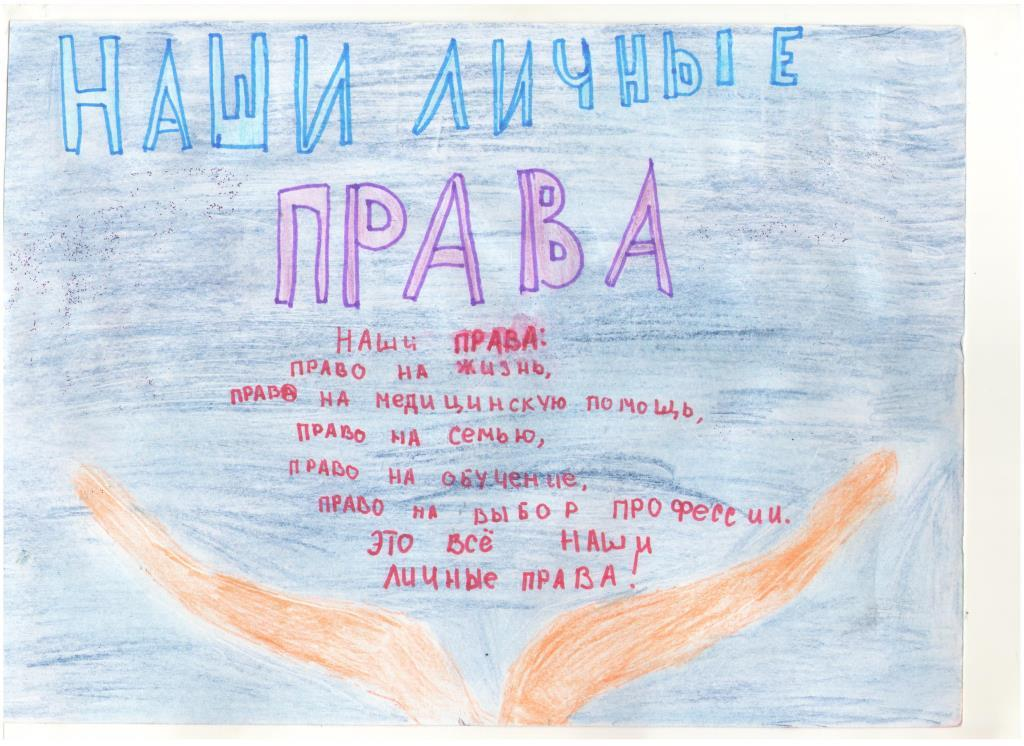 НАШИ ЛИЧНЫЕ
ПРАВА
НАШИ ПРАВА:
ПРАВО НА ЖИЗНЬ,
ПРАВО НА МЕДИЦИНСКУЮ ПОМОЩЬ,
ПРАВО НА СЕМЬЮ,
ПРАВО НА ОБУЧЕНИЕ,
ПРАВО НА ВЫБОР ПРОФЕССИИ.
ЭТО ВСЁ НАШИ
ЛИЧНЫЕ ПРАВА!